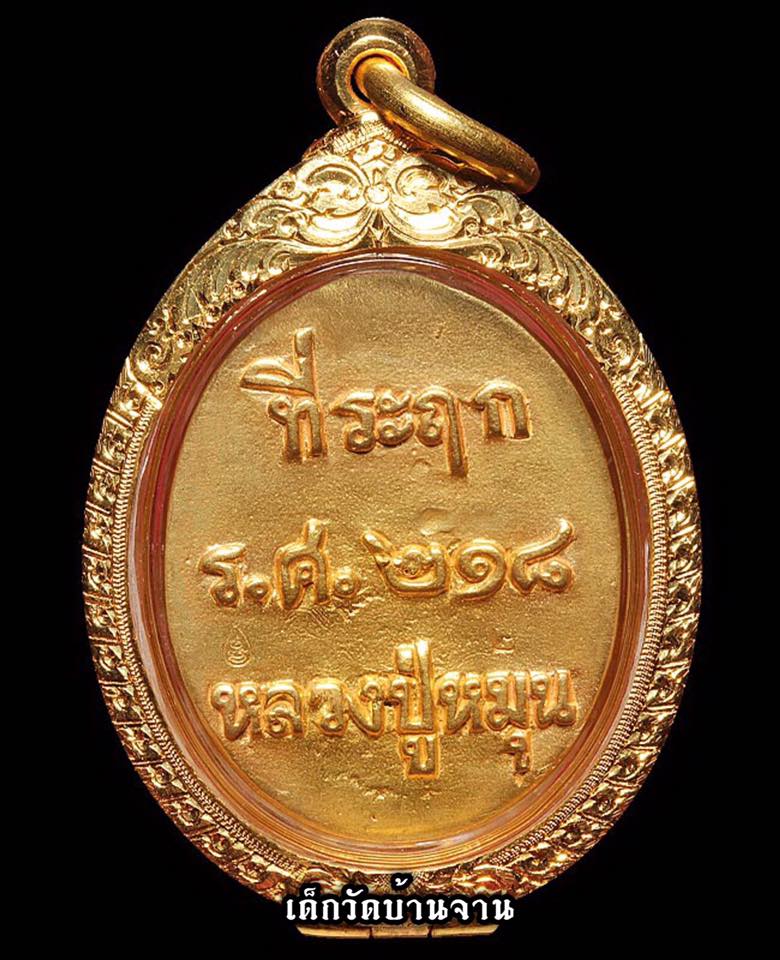 ที่ระฤก
ร.ศ. ๒๑๘
หลวงปู่หมุ้น
เด็กวัดบ้านจาน